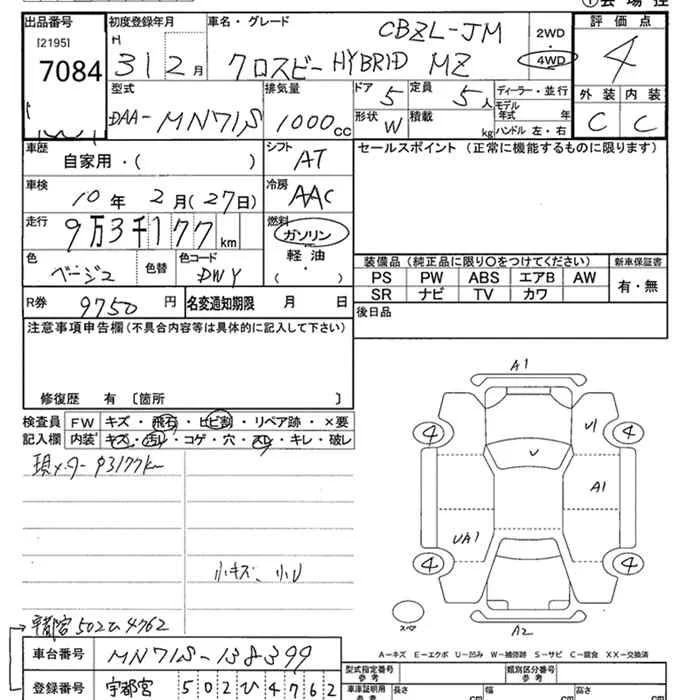 ①会場控
出品番号
[2195]
7084
初度登録年月
H
31 2月
車名・グレード
CBZL-JM
クロスビー HYBRID MZ
2WD
4WD
評価点
4
外装 内装
C C
型式
DAA-MN71S
排気量
1000cc
ドア 5
形状 W
定員 5人
積載 kg
ディーラー・並行
モデル年式 年
ハンドル 左・右
車歴
自家用・( )
シフト
AT
セールスポイント(正常に機能するものに限ります)
車検
10年 2月(27日)
冷房
AAC
走行
9万3千177km
燃料
ガソリン
軽油
( )
色
ベージュ
色替
色コード
DWY
装備品(純正品に限り○をつけてください)
新車保証書
PS PW ABS エアB AW
SR ナビ TV カワ
有・無
R券 9750 円
名変通知期限 月 日
後日品
注意事項申告欄(不具合内容等は具体的に記入して下さい)
修復歴 有 〔箇所 〕
検査員 FW キズ・飛石・ヒビ割・リペア跡・×要
記入欄 内装 キズ・汚レ・コゲ・穴・スレ・キレ・破レ
現メーター 93177km
小キズ、小U
A1
4
U1
4
U
A1
UA1
4
4
スペア
A2
A-キズ E-エクボ U-凹み W-補修跡 S-サビ C-腐食 XX-交換済
宇都宮 502ひ4762
車台番号 MN71S-138399
登録番号 宇都宮 502ひ4762
型式指定番号 参考
類別区分番号 参考
車庫証明用 参考
長さ cm
幅 cm
高さ cm